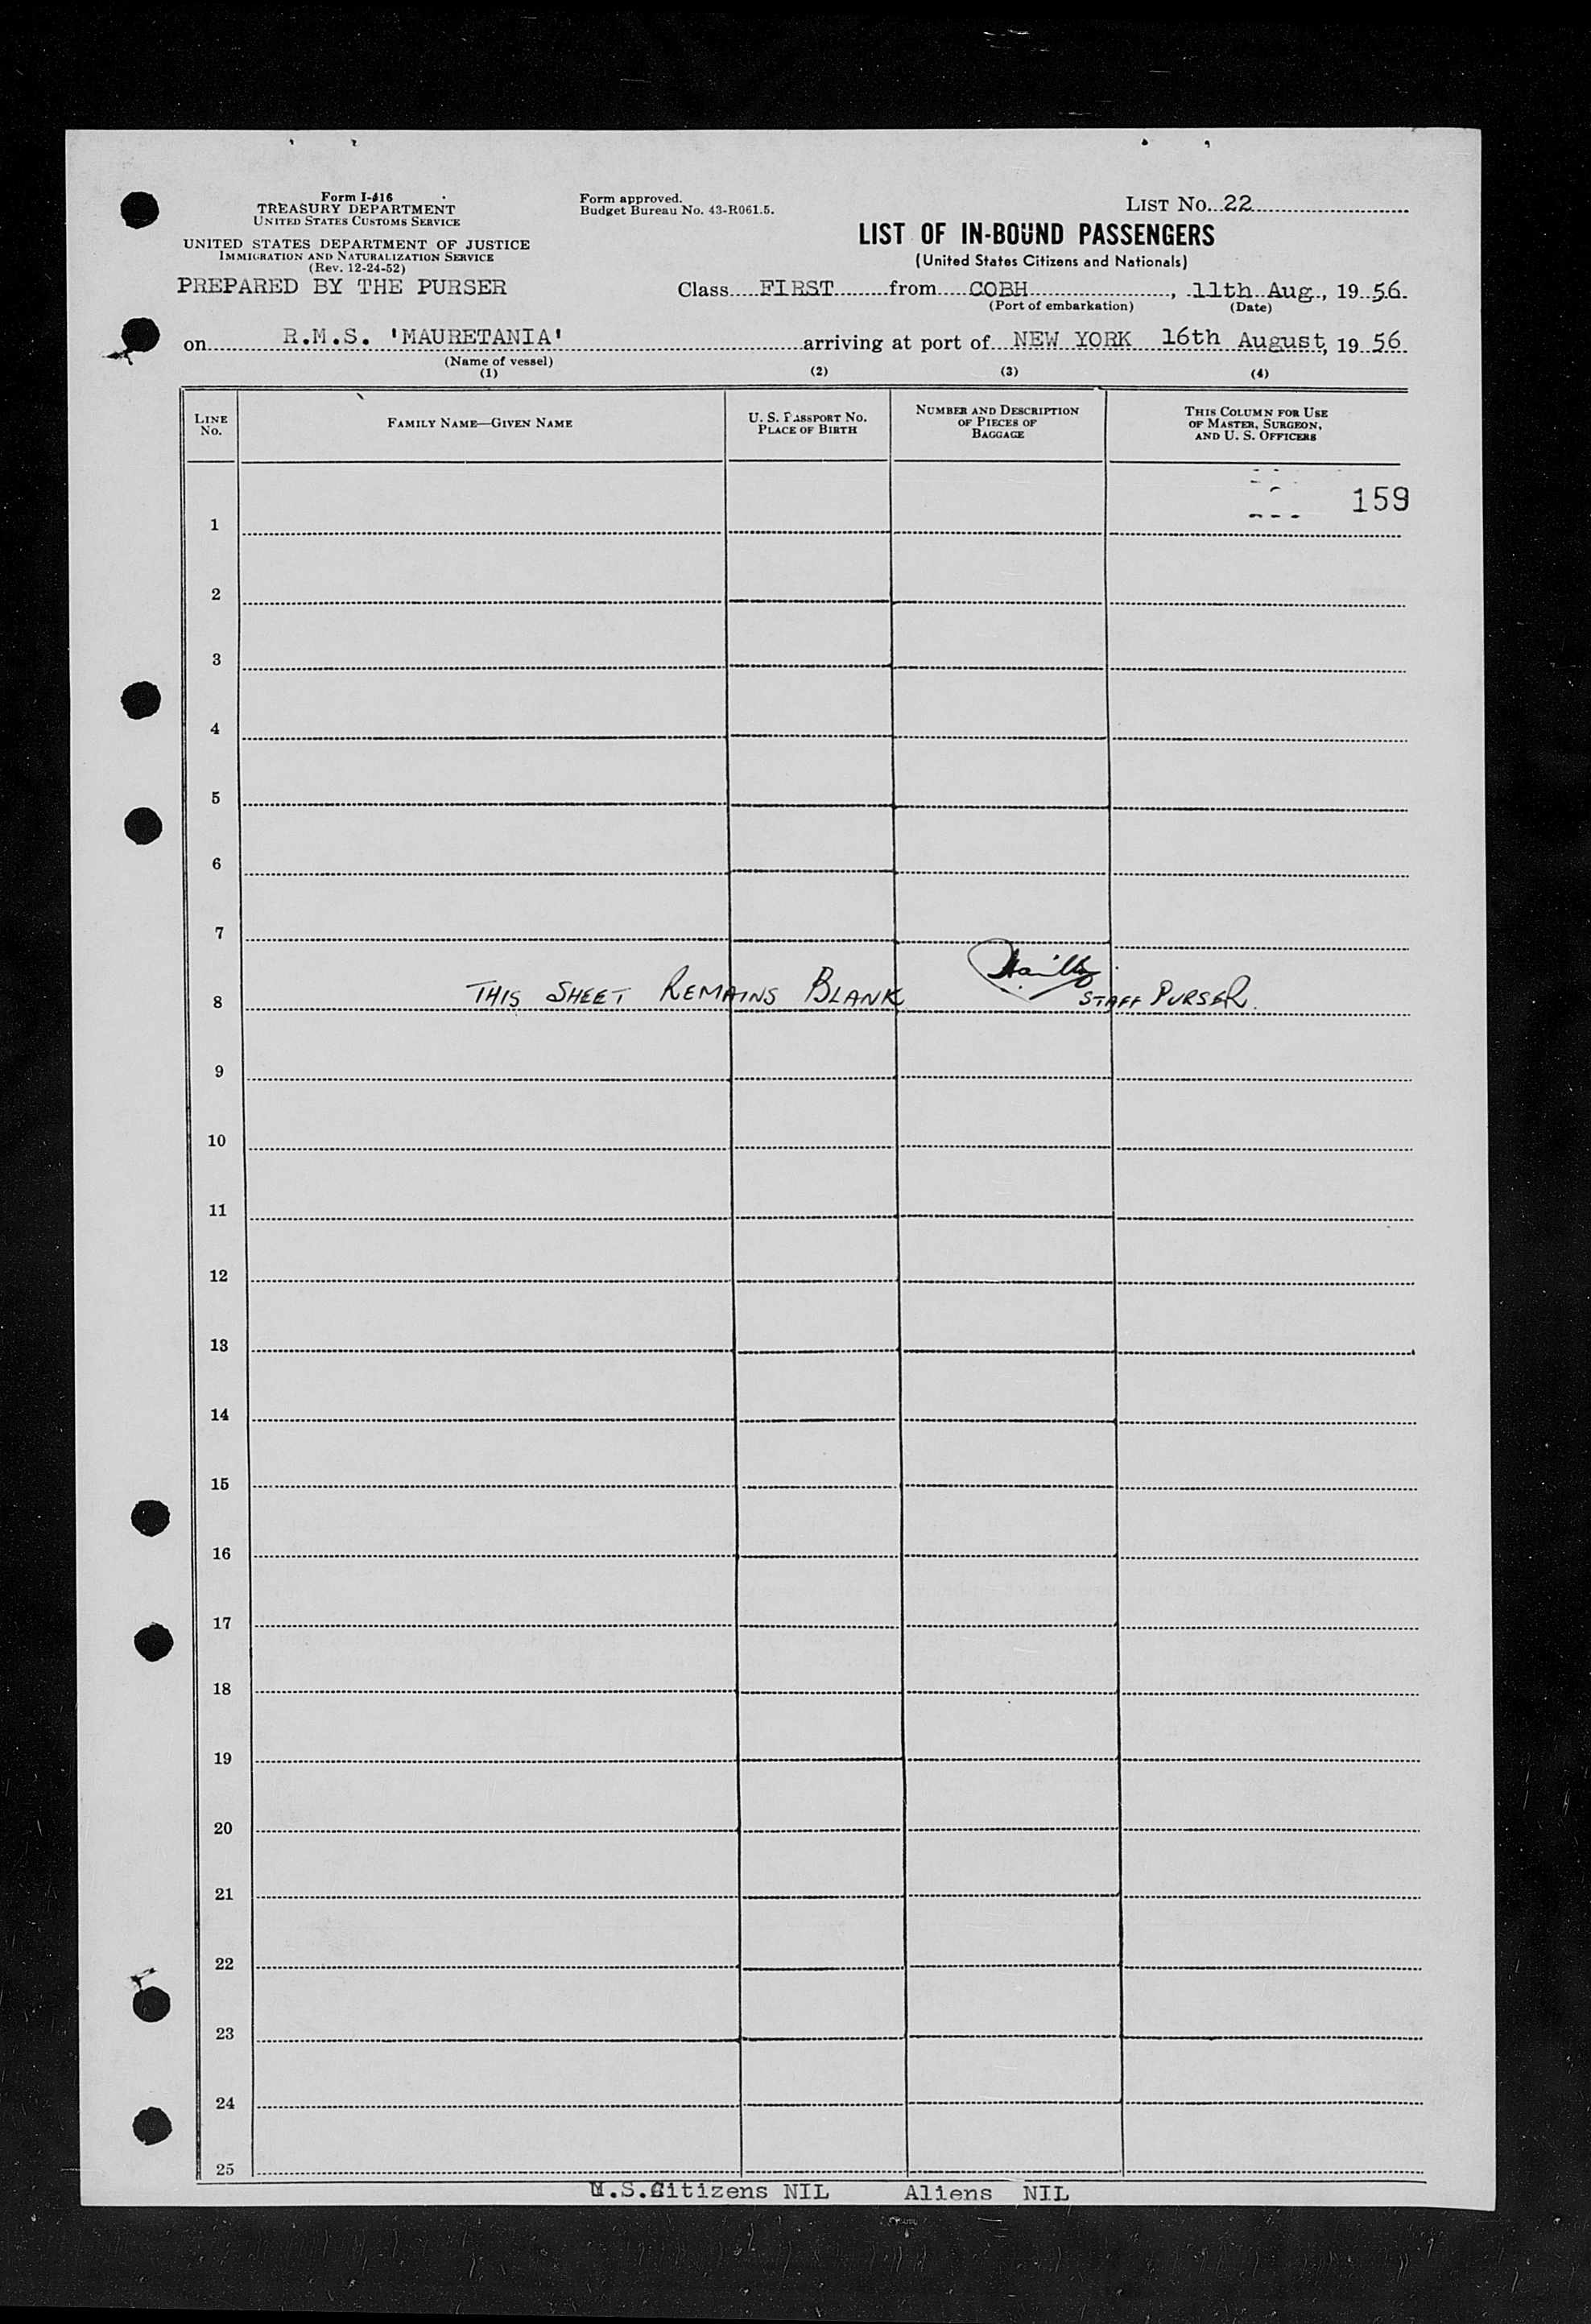 Form I-416
TREASURY DEPARTMENT
UNITED STATES CUSTOMS SERVICE
UNITED STATES DEPARTMENT OF JUSTICE
IMMIGRATION AND NATURALIZATION SERVICE
(Rev. 12-24-52)
PREPARED BY THE PURSER
Form approved.
Budget Bureau No. 43-R061.5.
LIST NO. 22
LIST OF IN-BOUND PASSENGERS
(United States Citizens and Nationals)
Class FIRST from COBH, 11th Aug., 19 56.
(Port of embarkation) (Date)
on R.M.S. 'MAURETANIA' arriving at port of NEW YORK 16th August, 19 56
(Name of vessel)
(1) (2) (3) (4)
LINE NO. FAMILY NAME—GIVEN NAME U. S. PASSPORT NO. PLACE OF BIRTH NUMBER AND DESCRIPTION OF PIECES OF BAGGAGE THIS COLUMN FOR USE OF MASTER, SURGEON, AND U. S. OFFICERS
159
1
2
3
4
5
6
7
8 THIS SHEET REMAINS BLANK STAFF PURSER.
9
10
11
12
13
14
15
16
17
18
19
20
21
22
23
24
25
U.S.Citizens NIL Aliens NIL